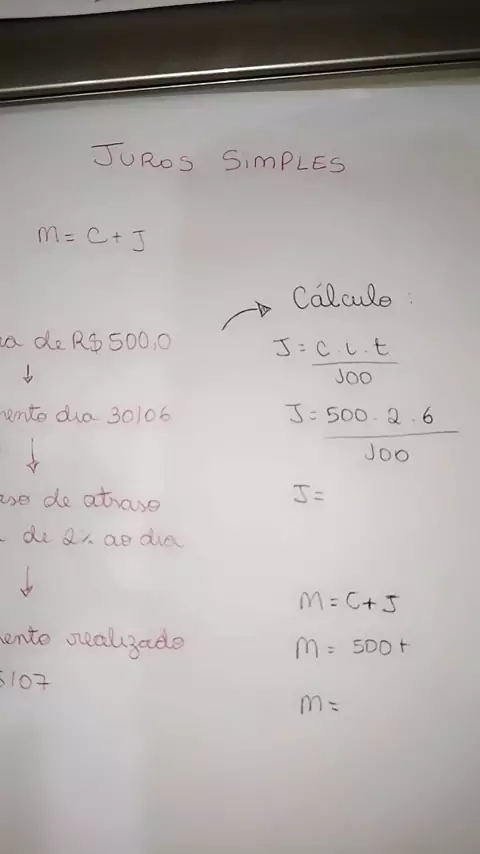 JUROS SIMPLES
M = C + J
de R$ 500,0
↓
dia 30/06
↓
de atraso
de 2% ao dia
↓
realizado
/07
Cálculo :
J = C . i . t
100
J = 500 . 2 . 6
100
J =
M = C + J
M = 500 +
M =